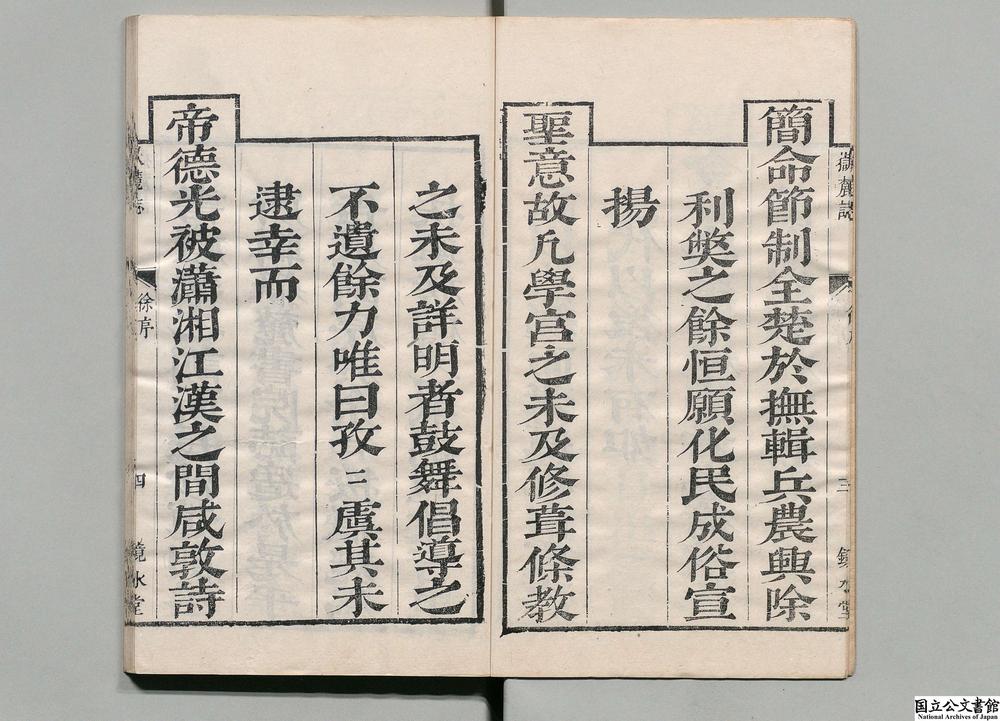 嶽麓誌
三
鏡水堂
簡命節制全楚於撫輯兵農興除
利獘之餘恒願化民成俗宣
揚
聖意故凡學宮之未及修葺條教
之未及詳明者鼓舞倡導之
不遺餘力唯曰孜〻虞其未
逮幸而
帝德光被瀟湘江漢之間咸敦詩
徐序
四
鏡水堂
国立公文書館
National Archives of Japan